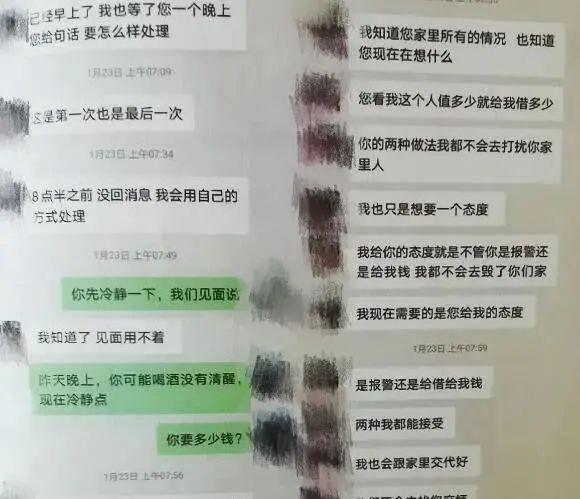 已经早上了 我也等了您一个晚上
您给句话 要怎么样处理
1月23日 上午07:09
这是第一次也是最后一次
1月23日 上午07:34
8点半之前 没回消息 我会用自己的
方式处理
1月23日 上午07:49
你先冷静一下，我们见面说
我知道了 见面用不着
昨天晚上，你可能喝酒没有清醒，
现在冷静点
你要多少钱？
1月23日 上午07:56
我知道您家里所有的情况 也知道
您现在在想什么
您看我这个人值多少就给我借多少
你的两种做法我都不会去打扰你家
里人
我也只是想要一个态度
我给你的态度就是不管你是报警还
是给我钱 我都不会去毁了你们家
我现在需要的是您给我的态度
1月23日 上午07:59
是报警还是给借给我钱
两种我都能接受
我也会跟家里交代好